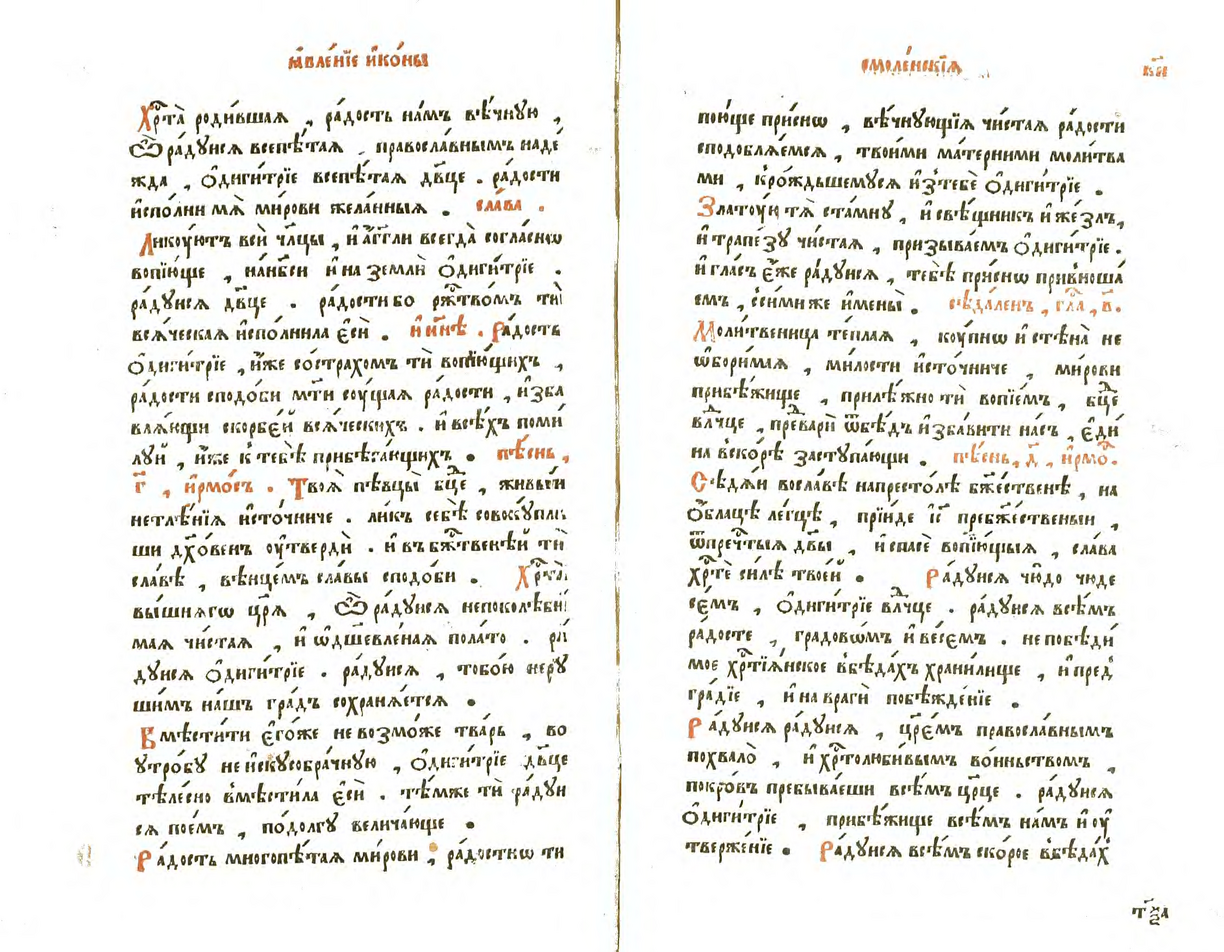 ꙗ҆вле́нїе и҆ко́ны
Хрⷭ҇та̀ роди́вшаѧ , ра́дость на́мъ вѣ́чную ,
Ѽ ра́дуисѧ всепѣ́таѧ , правосла́внымъ наде
жда , Ѻ҆диги́трїе всепѣ́таѧ дв҃це . ра́дости
и҆спо́лни мѧ̀ ми́рови жела́нныѧ . сла́ва .
Лику́ютъ всѝ чл҃цы , и҆ а҆́гг҃ли всегда̀ согла́снѡ
вопїю́ще , на́нб҃си и҆ на землѝ Ѻ҆диги́трїе .
ра́дуисѧ дв҃це . ра́дости бо рж҃тво́мъ тѝ
всѧ́ческаѧ и҆спо́лнила є҆сѝ . и҆ ны́нѣ . Ра́дость
Ѻ҆диги́трїе , и҆́же со́страхомъ тѝ вопїю́щихъ ,
ра́дости сподо́би мт҃и сꙋ́щаѧ ра́дости , и҆зба
влѧ́ющи скорбе́й всѧ́ческихъ . и҆ всѣ́хъ поми
луй , и҆́же к̾ тебѣ̀ прибѣга́ющихъ . пѣ́снь ,
г҃ , и҆рмо́съ . Твоѧ̀ пѣвцы̀ бц҃е , живы́и
нетлѣ́нїѧ и҆сто́чниче . ли́къ себѣ̀ совокупль
ши дх҃о́венъ ᲂу҆твердѝ . и҆ въ бж҃твенѣ́й тѝ
сла́вѣ , вѣнце́мъ сла́вы сподо́би . Хрⷭ҇та̀
вы́шнѧгѡ цр҃ѧ̀ , Ѽ ра́дуисѧ непоколѣби́
маѧ чи́стаѧ , и҆ ѡ҆дш҃евле́наѧ пола́то . ра́
дуисѧ Ѻ҆диги́трїе . ра́дуисѧ , тобо́ю неру́
шимъ на́шъ гра́дъ сохранѧ́етсѧ .
Вмѣсти́ти є҆го́же не возмо́же тва́рь , во
утро́бу неискусобра́чную , Ѻ҆диги́трїе дв҃це
тѣле́сно вмѣсти́ла є҆сѝ . тѣ́мже тѝ ра́дуи
сѧ пое́мъ , по́долгу велича́юще .
Ра́дость многопѣ́таѧ ми́рови , ра́достнѡ ти
смоле́нскїѧ
пою́ще при́снѡ , вѣ́чнующїѧ чи́стаѧ ра́дости
сподоблѧ́емсѧ , твои́ми ма́терними моли́тва
ми , к̾ро́ждьшемусѧ и҆з̾тебѐ Ѻ҆диги́трїе .
Злату́ю тѧ̀ ста́мну , и҆ свѣ́щникъ и҆ же́злъ ,
и҆ трапе́зу чи́стаѧ , призыва́емъ Ѻ҆диги́трїе .
и҆ гла́съ є҆́же ра́дуисѧ , тебѣ̀ при́снѡ приноша́
емъ , с̾си́ми же и҆мены̀ . сѣда́ленъ , гла́ , в҃ .
Моли́твеница те́плаѧ , ку́пнѡ и҆ стѣна̀ не
ѡ҆бори́маѧ , ми́лости и҆сто́чниче , ми́рови
прибѣ́жище , прилѣ́жно ти вопїе́мъ , бц҃е
влⷣчце , предварѝ ѿбѣ́дъ и҆ зба́вити на́съ , є҆ди́
на вско́рѣ заступа́ющи . пѣ́снь , д҃ , и҆рмо́ .
Сѣдѧ́и восла́вѣ напресто́лѣ бж҃е́ственѣ , на
Ѻ҆́блацѣ ле́гцѣ , прїи́де і҆с҃ пребж҃е́ственыи ,
ѿпречⷭ҇тыѧ дв҃ы , и҆ спасѐ вопїю́щыѧ , сла́ва
хрⷭ҇тѐ си́лѣ твое́й . Ра́дуисѧ чю́до чюде
се́мъ , Ѻ҆диги́трїе влⷣчце . ра́дуисѧ всѣ́мъ
ра́досте , градовѡ́мъ и҆ ве́семъ . непобѣди́
мое хрⷭ҇тїѧ́нское в̾бѣда́хъ храни́лище , и҆ пред̾
гра́дїе , и҆ на врагѝ побѣжде́нїе .
Ра́дуисѧ ра́дуисѧ , цр҃е́мъ правосла́внымъ
похвало̀ , и҆ хрⷭ҇толюби́вымъ во́иньствомъ ,
покро́въ пребыва́еши всѣ́мъ цр҃це . ра́дуисѧ
Ѻ҆диги́трїе , прибѣ́жище всѣ́мъ на́мъ и҆ ᲂу҆
тверже́нїе . Ра́дуисѧ всѣ́мъ ско́рое в̾бѣда́х̾